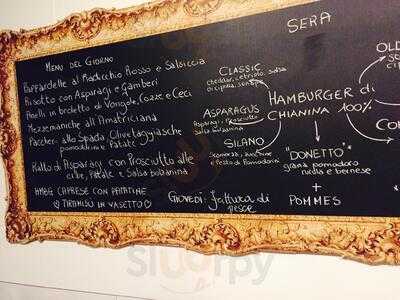 MENU DEL GIORNO
Pappardelle al Radicchio Rosso e Salsiccia
Risotto con Asparagi e Gamberi
Anelli in brodetto di Vongole, Cozze e Ceci
Mezzemaniche all'Amatriciana
Paccheri allo Spada, Olive taggiasche
pomodorini e Patate
Rollo di Asparagi con Prosciutto alle
erbe, Patate e Salsa bolzanina
HMBG CAPRESE CON PATATINE
♡ TIRAMISÙ IN VASETTO ♡
SERA
CLASSIC
cheddar, cetriolo, salsa
di cipolla,
ASPARAGUS
Asparagi, Prosciutto
salsa bolzanina
SILANO
Scamorza, zucchine
e Pesto di Pomodorini
HAMBURGER di
CHIANINA 100%
"DONETTO"
grana pomodoro
rucola e bernese
+
POMMES
GIOVEDÌ: frittura di
pesce
OLD
sluurpy